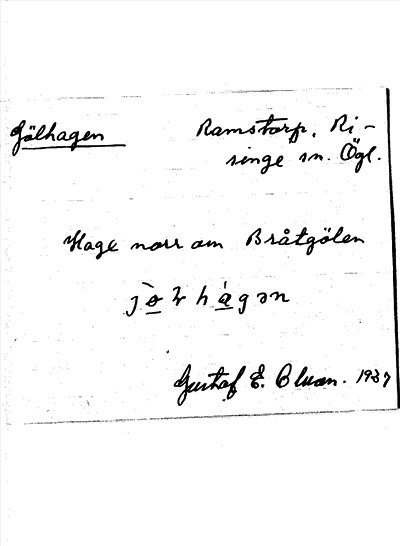 Gölhagen
Ramstorp, Ri-
singe sn. Ögl.
Hage norr om Bråtgölen
Gustaf E. 1937